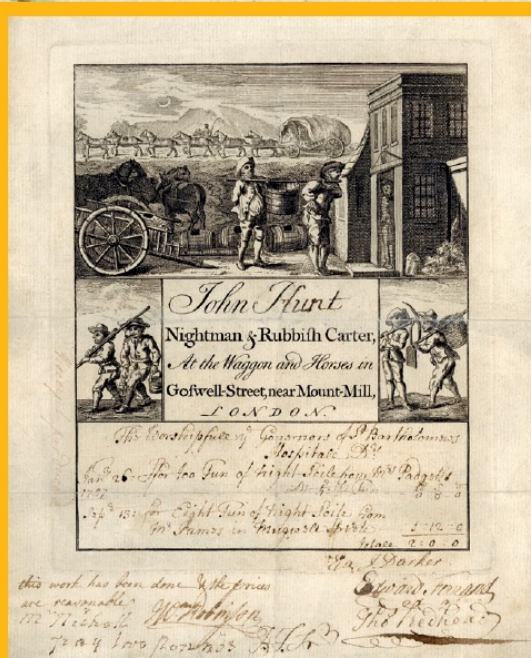 John Hunt
Nightman & Rubbiſh Carter,
At the Waggon and Horses in
Goſwell-Street, near Mount-Mill,
LONDON.
The Worshipfull Governors of St Bartholomews
Hospitall Dr
26 for too Tun of Night Soile from Mrs
0 8 0
13 for Eight Tun of Night Soile from
Mr James in
1 12 0
Totale 2 0 0
Darker
this work has been done & the prices
are reasonable
Edward
Tho Redhead
Pay two Pounds